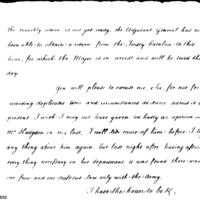 the monthly return is not yet ready, the Adjutant General has not
been able to obtain a return from the Jersey Battalion to this
time, for which the Major is in arrest, and will be tried this
day.
You will please to excuse me, sir, for not for
warding duplicates, time and circumstances do not admit it at
present. I wish I may not have given too hasty an opinion
Mr Hodgdon in my last, I will see more of him before I say
any thing about him again, but last night after having
every thing necessary in his department, it was found there was
no for only with the Army.
I have the honor to be &c